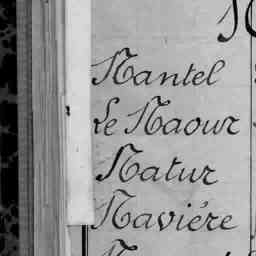 N
Nantel
Le Naour
Natur
Naviére